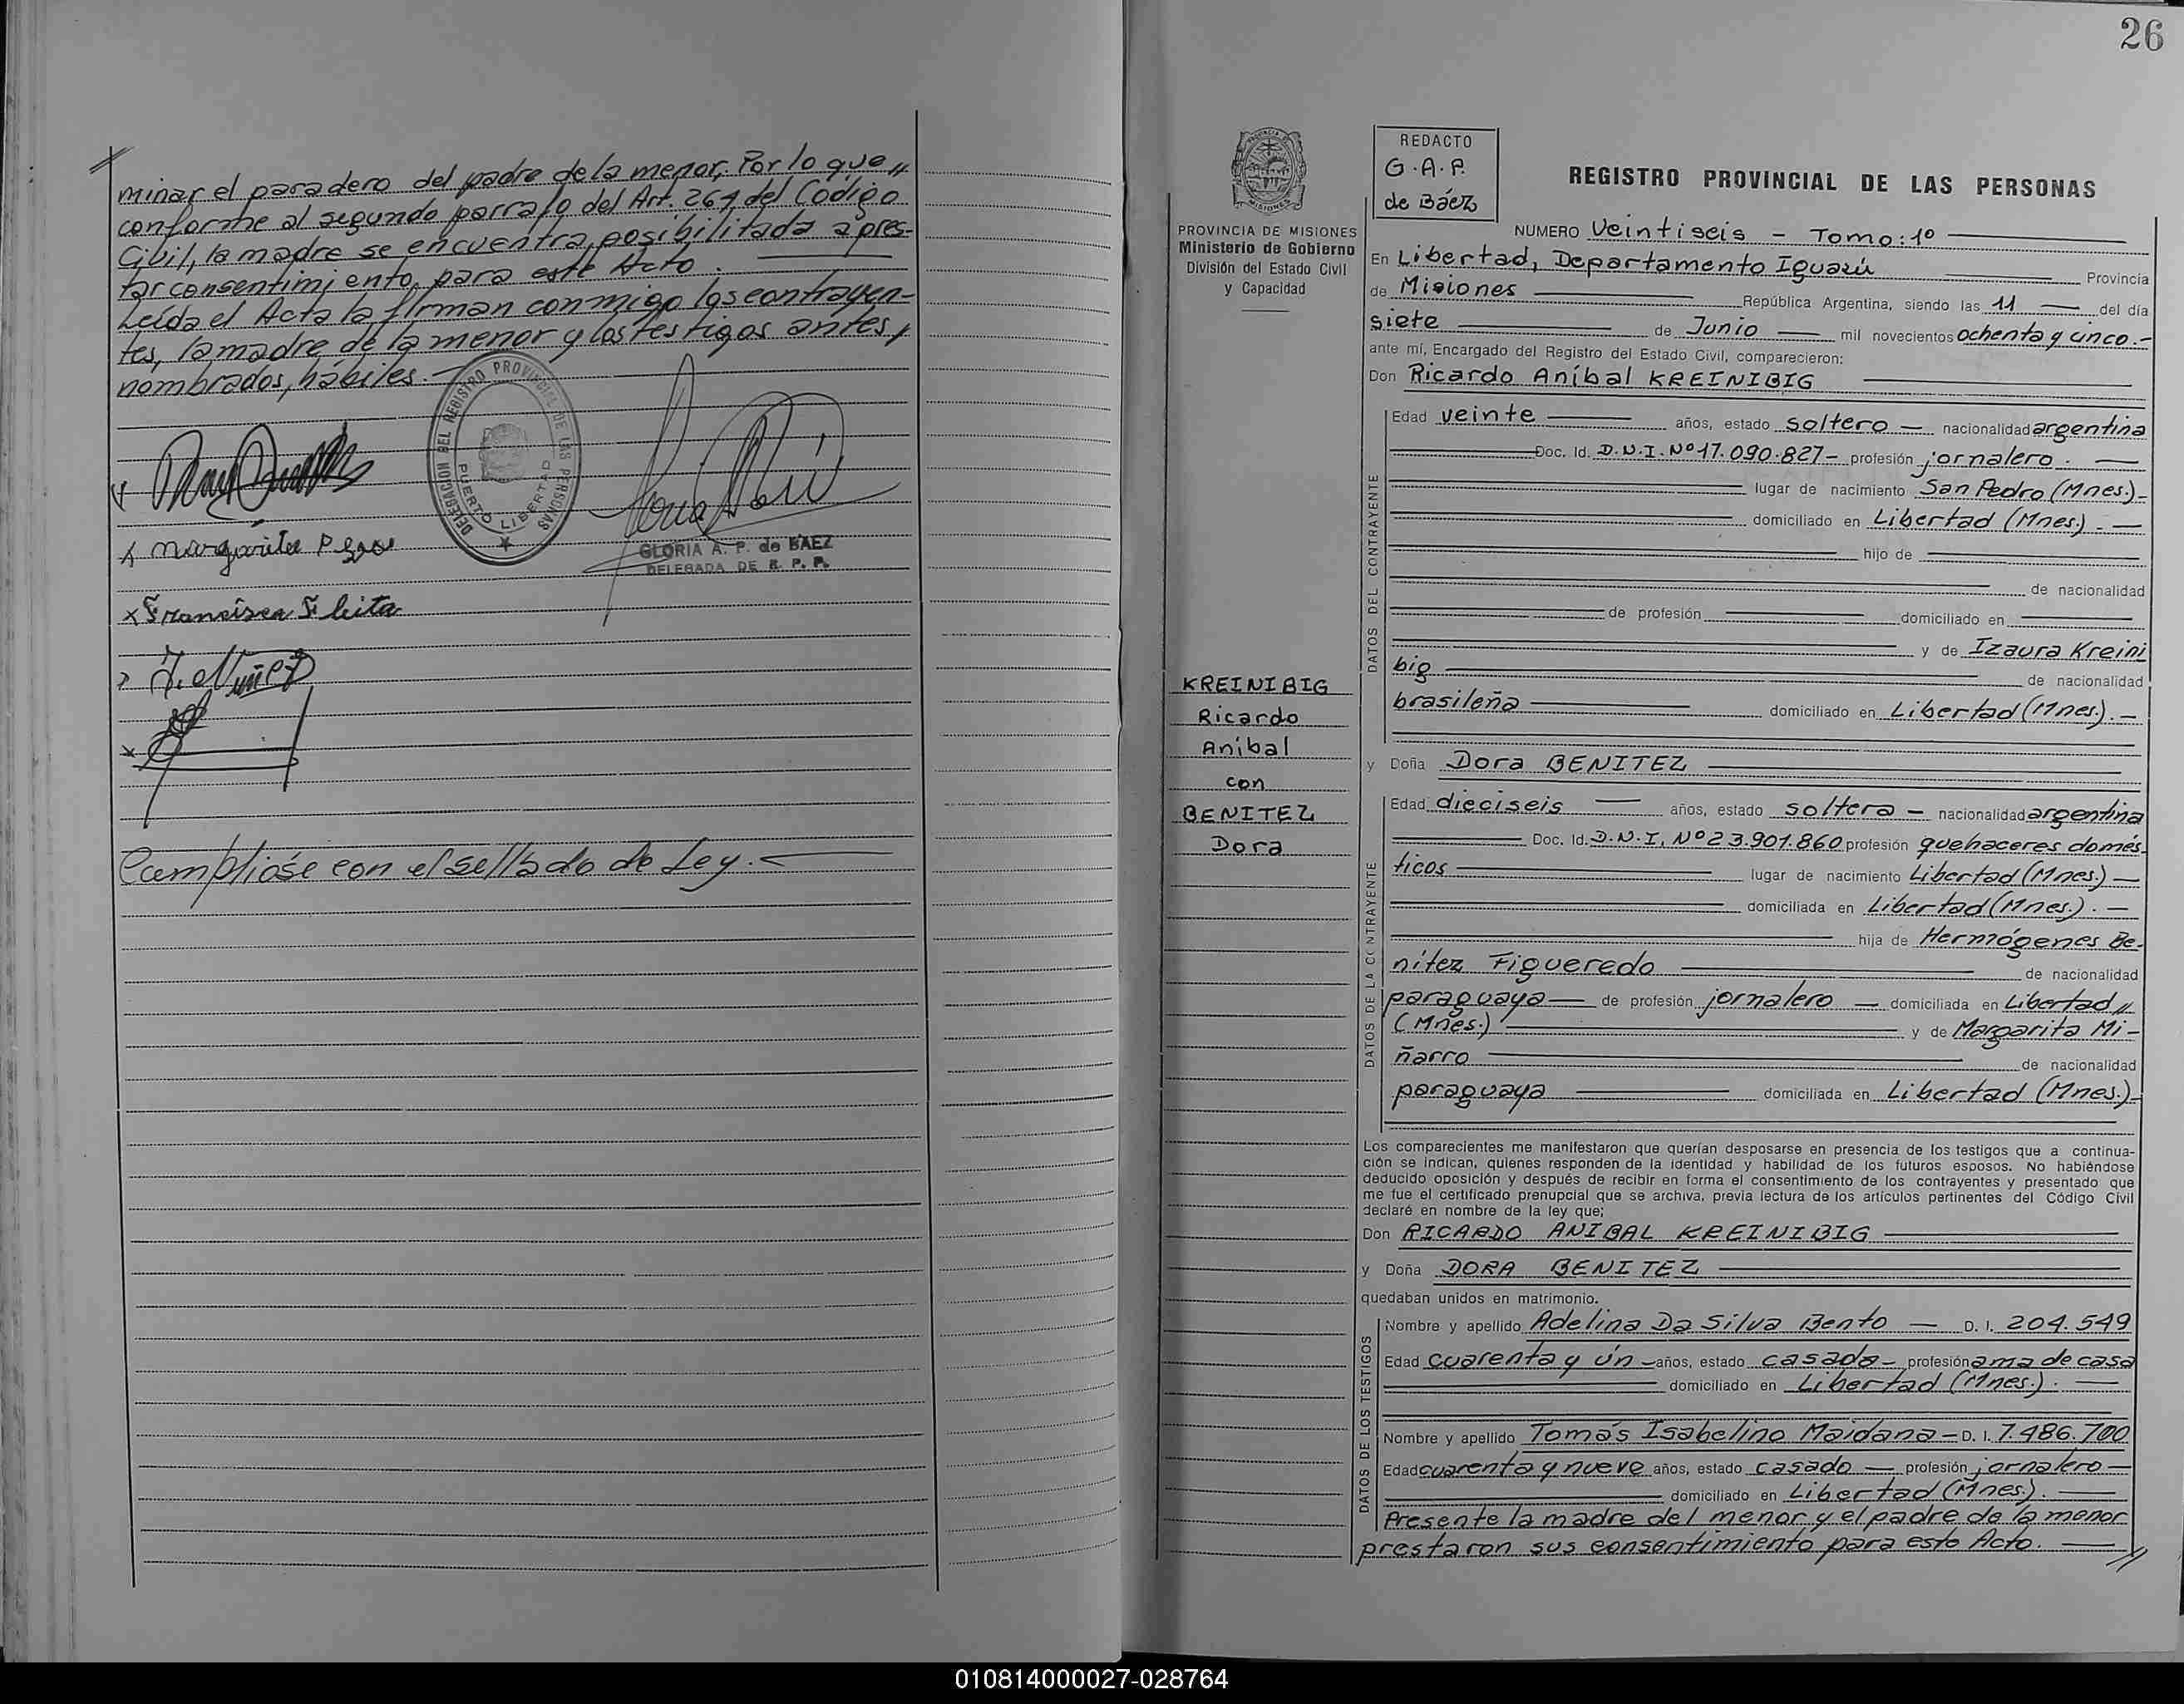 minar el paradero del padre de la menor; Por lo que //
conforme al segundo parrafo del Art. 264 del Codigo
Civil, la madre se encuentra posibilitada a pres-
tar consentimiento para este Acto.
Leída el Acta la firman conmigo los contrayen-
tes, la madre de la menor y los testigos antes,
nombrados, hábiles.-
DELEGACION DEL REGISTRO PROVINCIAL DE LAS PERSONAS
PUERTO LIBERTAD
GLORIA A. P. de BAEZ
DELEGADA DE R. P. P.
x Margarita
x Francisca F leita
F. Nuñez
Cumplióse con el sellado de Ley.-
26
REDACTO
G.A.P.
de Báez
REGISTRO PROVINCIAL DE LAS PERSONAS
MISIONES
PROVINCIA DE MISIONES
Ministerio de Gobierno
División del Estado Civil
y Capacidad
NUMERO Veintiseis - Tomo: 1º
En Libertad, Departamento Iguazú Provincia
de Misiones República Argentina, siendo las 11 del día
siete de Junio mil novecientos ochenta y cinco.-
ante mí, Encargado del Registro del Estado Civil, comparecieron:
Don Ricardo Aníbal KREINIBIG
DATOS DEL CONTRAYENTE
Edad veinte años, estado soltero - nacionalidad argentina
Doc. Id. D.N.I. Nº 17.090.827- profesión jornalero.
lugar de nacimiento San Pedro (Mnes.)-
domiciliado en Libertad (Mnes.).-
hijo de
de nacionalidad
de profesión domiciliado en
y de Izaura Kreini
big de nacionalidad
brasileña domiciliado en Libertad (Mnes.).-
KREINIBIG
Ricardo
Aníbal
con
BENITEZ
Dora
y Doña Dora BENITEZ
DATOS DE LA CONTRAYENTE
Edad dieciseis años, estado soltera - nacionalidad argentina
Doc. Id. D.N.I. Nº 23.901.860 profesión quehaceres domés-
ticos lugar de nacimiento Libertad (Mnes.)-
domiciliada en Libertad (Mnes.).-
hija de Hermógenes Be-
nítez Figueredo de nacionalidad
paraguaya de profesión jornalero - domiciliada en Libertad //
(Mnes.) y de Margarita Mi-
ñarro de nacionalidad
paraguaya domiciliada en Libertad (Mnes.)-
Los comparecientes me manifestaron que querían desposarse en presencia de los testigos que a continua-
ción se indican, quienes responden de la identidad y habilidad de los futuros esposos. No habiéndose
deducido oposición y después de recibir en forma el consentimiento de los contrayentes y presentado que
me fue el certificado prenupcial que se archiva, previa lectura de los artículos pertinentes del Código Civil
declaré en nombre de la ley que;
Don RICARDO ANIBAL KREINIBIG
y Doña DORA BENITEZ
quedaban unidos en matrimonio.
DATOS DE LOS TESTIGOS
Nombre y apellido Adelina Da Silva Bento - D. I. 204.549
Edad cuarenta y ún - años, estado casada - profesión ama de casa
domiciliado en Libertad (Mnes.).
Nombre y apellido Tomás Isabelino Maidana - D. I. 7.486.700
Edad cuarenta y nueve años, estado casado - profesión jornalero -
domiciliado en Libertad (Mnes.).
Presente la madre del menor y el padre de la menor
prestaron sus consentimiento para este Acto. //
010814000027-028764